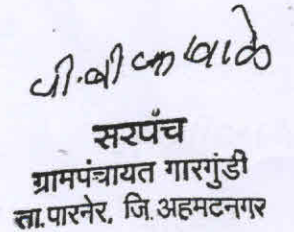 सरपंच
ग्रामपंचायत गारगुंडी
ता.पारनेर, जि.अहमदनगर